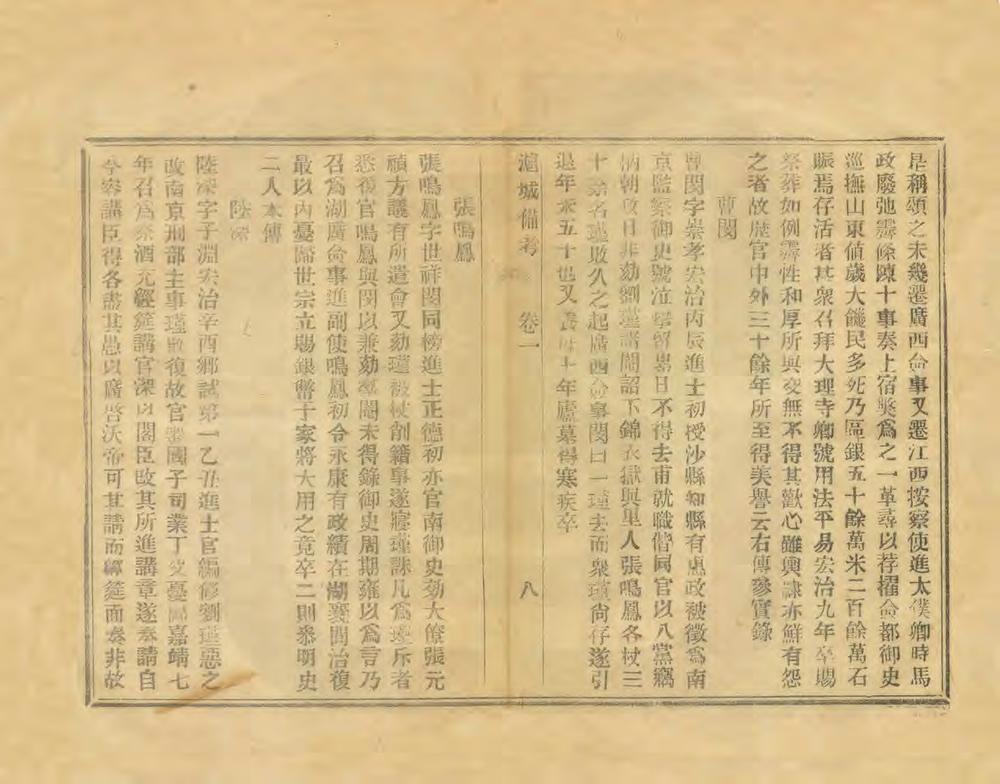 是稱頌之未幾遷廣西僉事又遷江西按察使進太僕卿時馬
政廢弛霽條陳十事奏上宿獘爲之一革尋以荐擢僉都御史
巡撫山東値歲大饑民多死乃區銀五十餘萬米二百餘萬石
賑焉存活者甚衆召拜大理寺卿號用法平易宏治九年卒賜
祭葬如例霽性和厚所與交無不得其歡心雖輿隷亦鮮有怨
之者故歷官中外三十餘年所至得美譽云右傳參實錄
曹閔
曹閔字崇孝宏治丙辰進士初授沙縣知縣有惠政被徵爲南
京監察御史號泣攀留累日不得去甫就職偕同官以八黨竊
柄朝政日非劾劉瑾諸閹詔下錦衣獄與里人張鳴鳳各杖三
十除名瑾敗久之起廣西僉事閔曰一瑾去而衆瑾尙存遂引
退年未五十也又養母十年廬墓得寒疾卒
滬城備考 卷二 八
張鳴鳳
張鳴鳳字世祥閔同榜進士正德初亦官南御史劾大僚張元
禎方議有所遣會又劾瑾被杖削籍事遂寢瑾誅凡爲瑾斥者
悉復官鳴鳳與閔以兼劾羣閹未得錄御史周期雍以爲言乃
召爲湖廣僉事進副使鳴鳳初令永康有政績在湖襄間治復
最以內憂歸世宗立賜銀幣于家將大用之竟卒二則叅明史
二人本傳
陸深
陸深字子淵宏治辛酉鄕試第一乙丑進士官編修劉瑾惡之
改南京刑部主事瑾敗復故官遷國子司業丁父憂歸嘉靖七
年召爲祭酒充經筵講官深以閣臣改其所進講章遂奏請自
今容講臣得各盡其愚以廣啓沃帝可其請而輔筵面奏非故